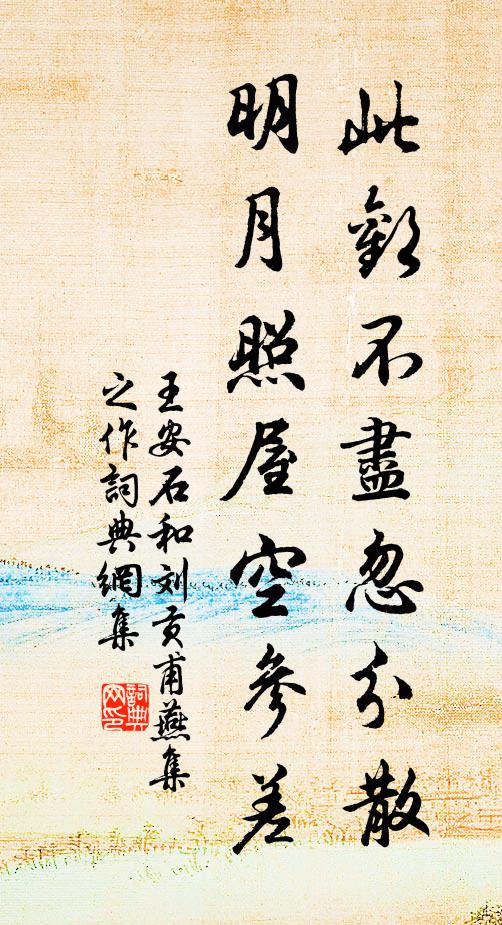 此歡不盡忽分散
明月照屋空參差
王安石和刘貢甫燕集
之作詞典網集
詞典
网印